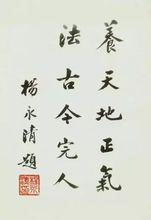 養天地正氣
法古今完人
楊永清題